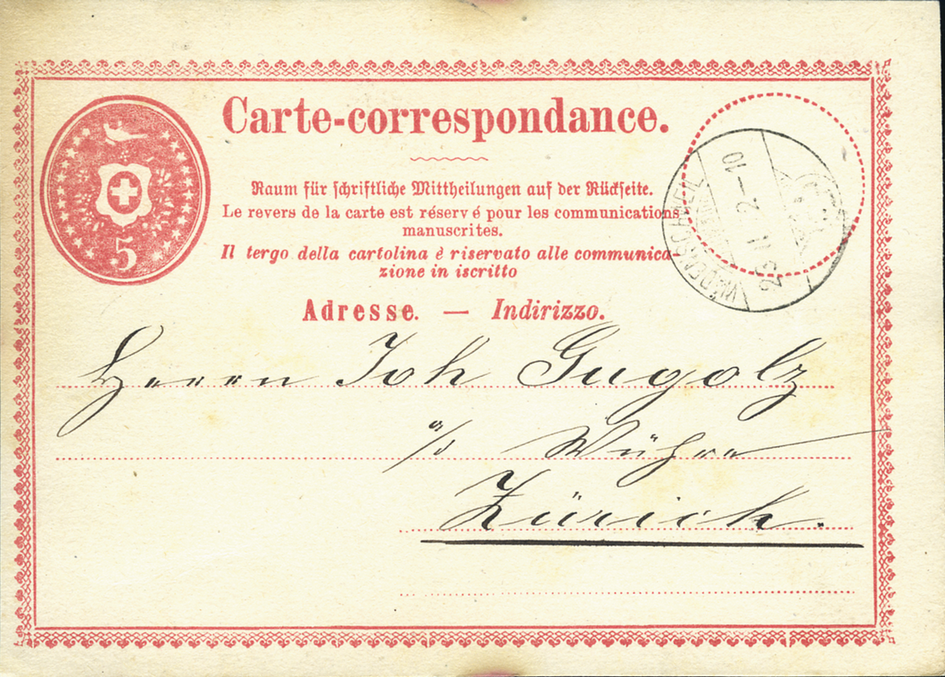 Carte-correspondance.
Raum für schriftliche Mittheilungen auf der Rückseite.
Le revers de la carte est réservé pour les communications
manuscrites.
Il tergo della cartolina è riservato alle communica-
zione in iscritto
5
Adresse. — Indirizzo.
Herrn Joh Gugolz
Wühre
Zürich.